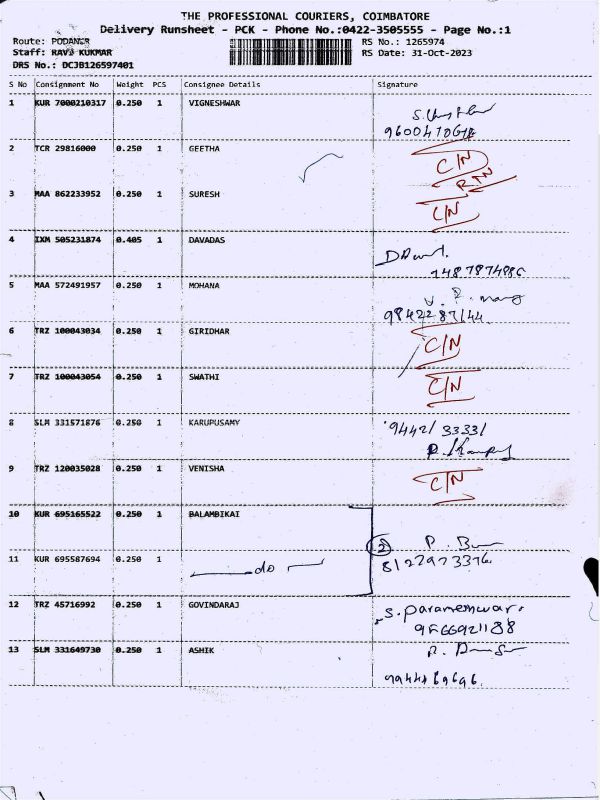 THE PROFESSIONAL COURIERS, COIMBATORE
Delivery Runsheet - PCK - Phone No.:0422-3505555 - Page No.:1
Route: PODANUR
RS No.: 1265974
Staff: RAVI KUKMAR
RS Date: 31-Oct-2023
DRS No.: DCJB126597401
S No Consignment No Weight PCS Consignee Details Signature
1 KUR 7000210317 0.250 1 VIGNESHWAR
2 TCR 29816000 0.250 1 GEETHA C/N
3 MAA 862233952 0.250 1 SURESH C/N
4 IXM 505231874 0.405 1 DAVADAS
5 MAA 572491957 0.250 1 MOHANA
9842287144
6 TRZ 100043034 0.250 1 GIRIDHAR C/N
7 TRZ 100043054 0.250 1 SWATHI C/N
8 SLM 331571876 0.250 1 KARUPUSAMY 9442133331
9 TRZ 120035028 0.250 1 VENISHA C/N
10 KUR 695165522 0.250 1 BALAMBIKAI
11 KUR 695587694 0.250 1 do 2
12 TRZ 45716992 0.250 1 GOVINDARAJ S. Parameshwar
13 SLM 331649730 0.250 1 ASHIK